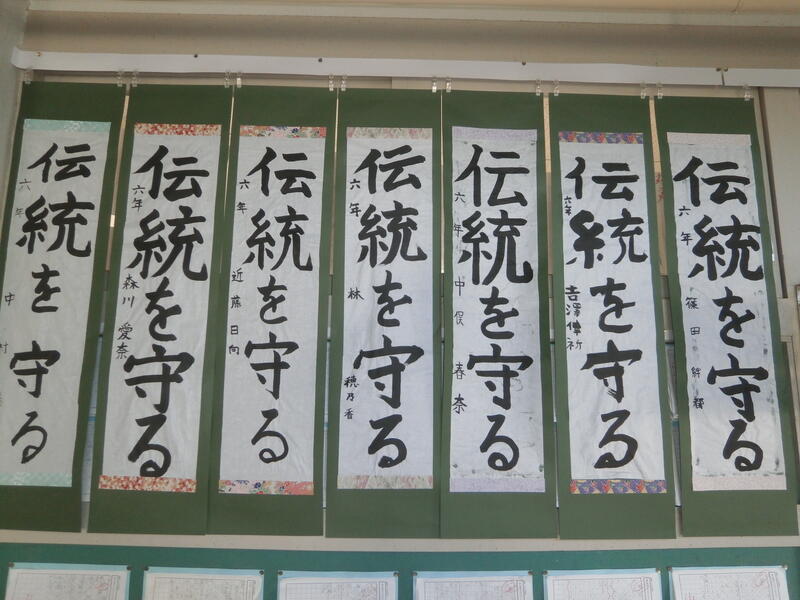 伝統を守る
六年 篠田
伝統を守る
六年 吉澤
伝統を守る
六年 中俣 春奈
伝統を守る
六年 林 穂乃香
伝統を守る
六年 近藤日向
伝統を守る
六年 森川 愛奈
伝統を守る
六年 中村